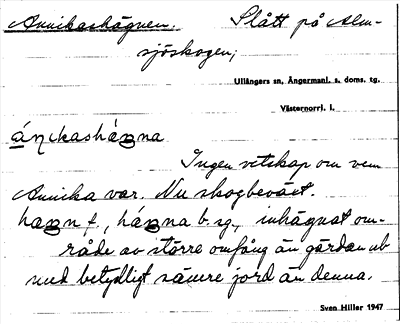 Annikashägnen. Slått på Alm-
sjöskogen;
Ullångers sn, Ångermanl. s. doms. tg.
Västernorrl. l.
ánikashágna
Ingen vetskap om vem
Annika var. Nu skogbeväxt.
hagn f., hágna b. sg., inhägnat om-
råde av större omfång än gärdan
med betydligt sämre jord än denna.
Sven Hiller 1947